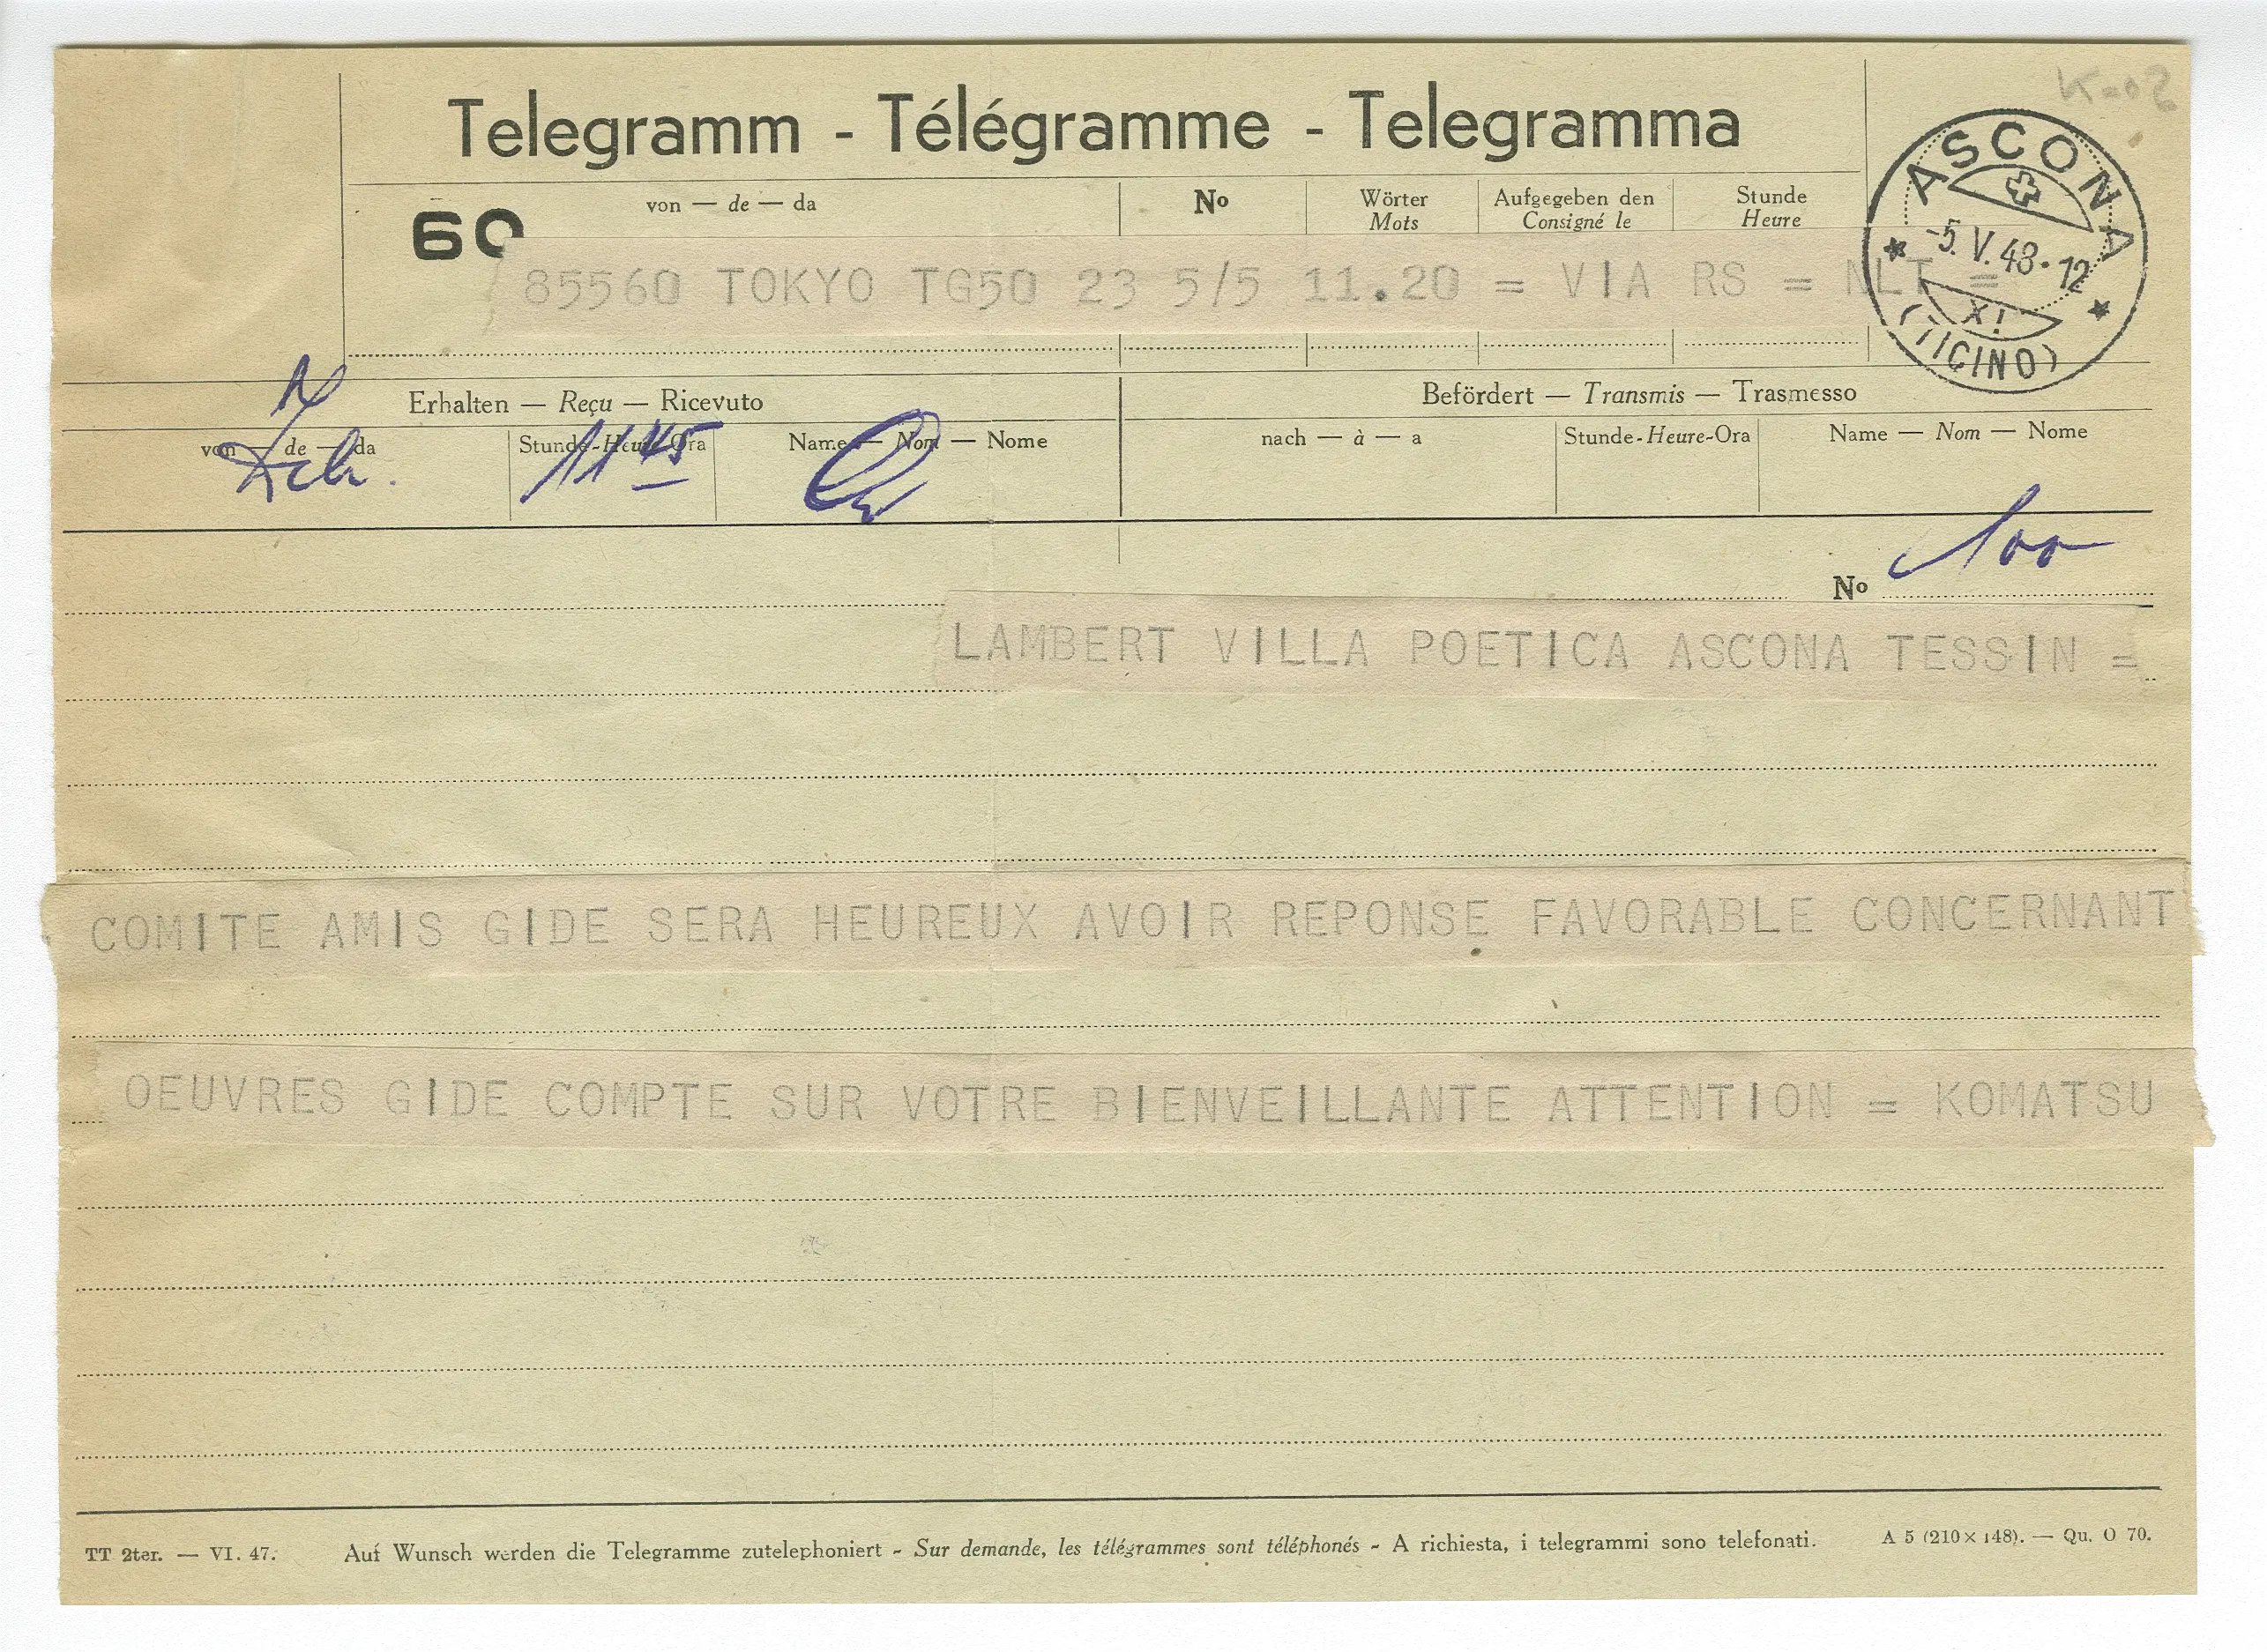 Telegramm - Télégramme - Telegramma
60
von — de — da
No
Wörter
Mots
Aufgegeben den
Consigné le
Stunde
Heure
ASCONA
-5. V. 48. 12
XI
(TICINO)
85560 TOKYO TG50 23 5/5 11.20 = VIA RS = NLT =
Erhalten — Reçu — Ricevuto
Befördert — Transmis — Trasmesso
von — de — da
Stunde-Heure-Ora
Name — Nom — Nome
nach — à — a
Stunde-Heure-Ora
Name — Nom — Nome
1145
No 100
LAMBERT VILLA POETICA ASCONA TESSIN =
COMITE AMIS GIDE SERA HEUREUX AVOIR REPONSE FAVORABLE CONCERNANT
OEUVRES GIDE COMPTE SUR VOTRE BIENVEILLANTE ATTENTION = KOMATSU
TT 2ter. — VI. 47.
Auf Wunsch werden die Telegramme zutelephoniert - Sur demande, les télégrammes sont téléphonés - A richiesta, i telegrammi sono telefonati.
A 5 (210 × 148). — Qu. O 70.